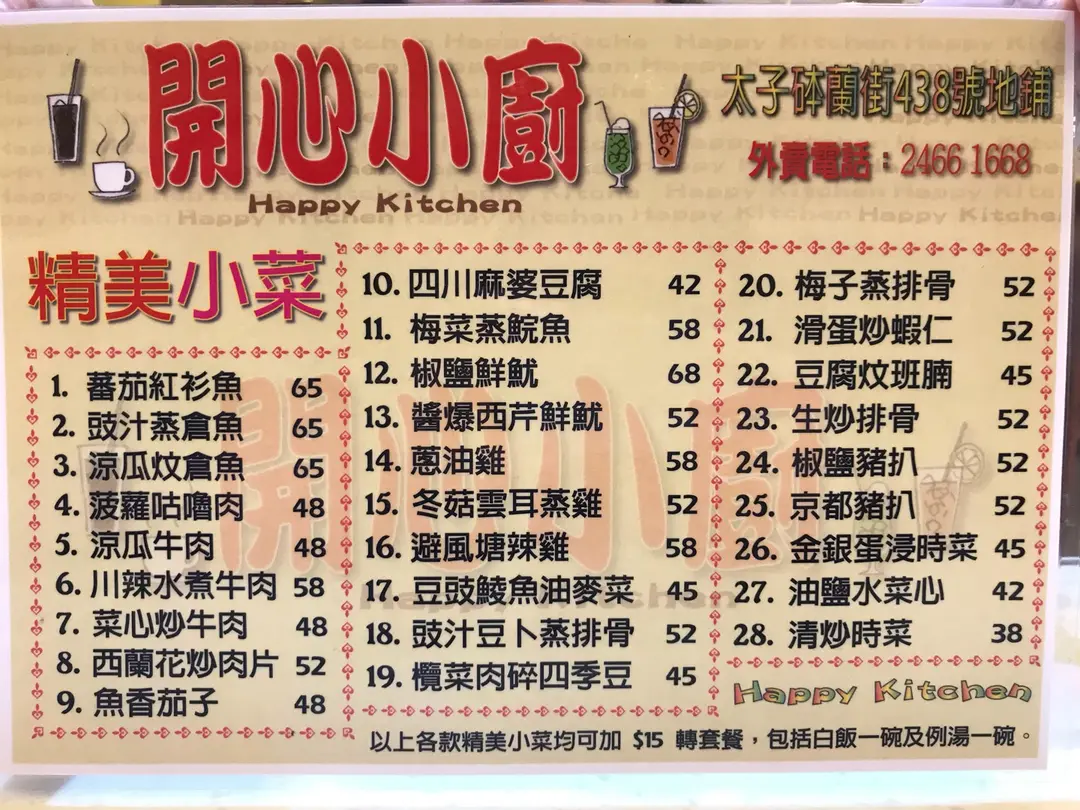 開心小廚
Happy Kitchen
太子砵蘭街438號地鋪
外賣電話：2466 1668
精美小菜
1. 蕃茄紅衫魚 65
2. 豉汁蒸倉魚 65
3. 涼瓜炆倉魚 65
4. 菠蘿咕嚕肉 48
5. 涼瓜牛肉 48
6. 川辣水煮牛肉 58
7. 菜心炒牛肉 48
8. 西蘭花炒肉片 52
9. 魚香茄子 48
10. 四川麻婆豆腐 42
11. 梅菜蒸鯇魚 58
12. 椒鹽鮮魷 68
13. 醬爆西芹鮮魷 52
14. 蔥油雞 58
15. 冬菇雲耳蒸雞 52
16. 避風塘辣雞 58
17. 豆豉鯪魚油麥菜 45
18. 豉汁豆卜蒸排骨 52
19. 欖菜肉碎四季豆 45
20. 梅子蒸排骨 52
21. 滑蛋炒蝦仁 52
22. 豆腐炆班腩 45
23. 生炒排骨 52
24. 椒鹽豬扒 52
25. 京都豬扒 52
26. 金銀蛋浸時菜 45
27. 油鹽水菜心 42
28. 清炒時菜 38
Happy Kitchen
以上各款精美小菜均可加 $15 轉套餐，包括白飯一碗及例湯一碗。